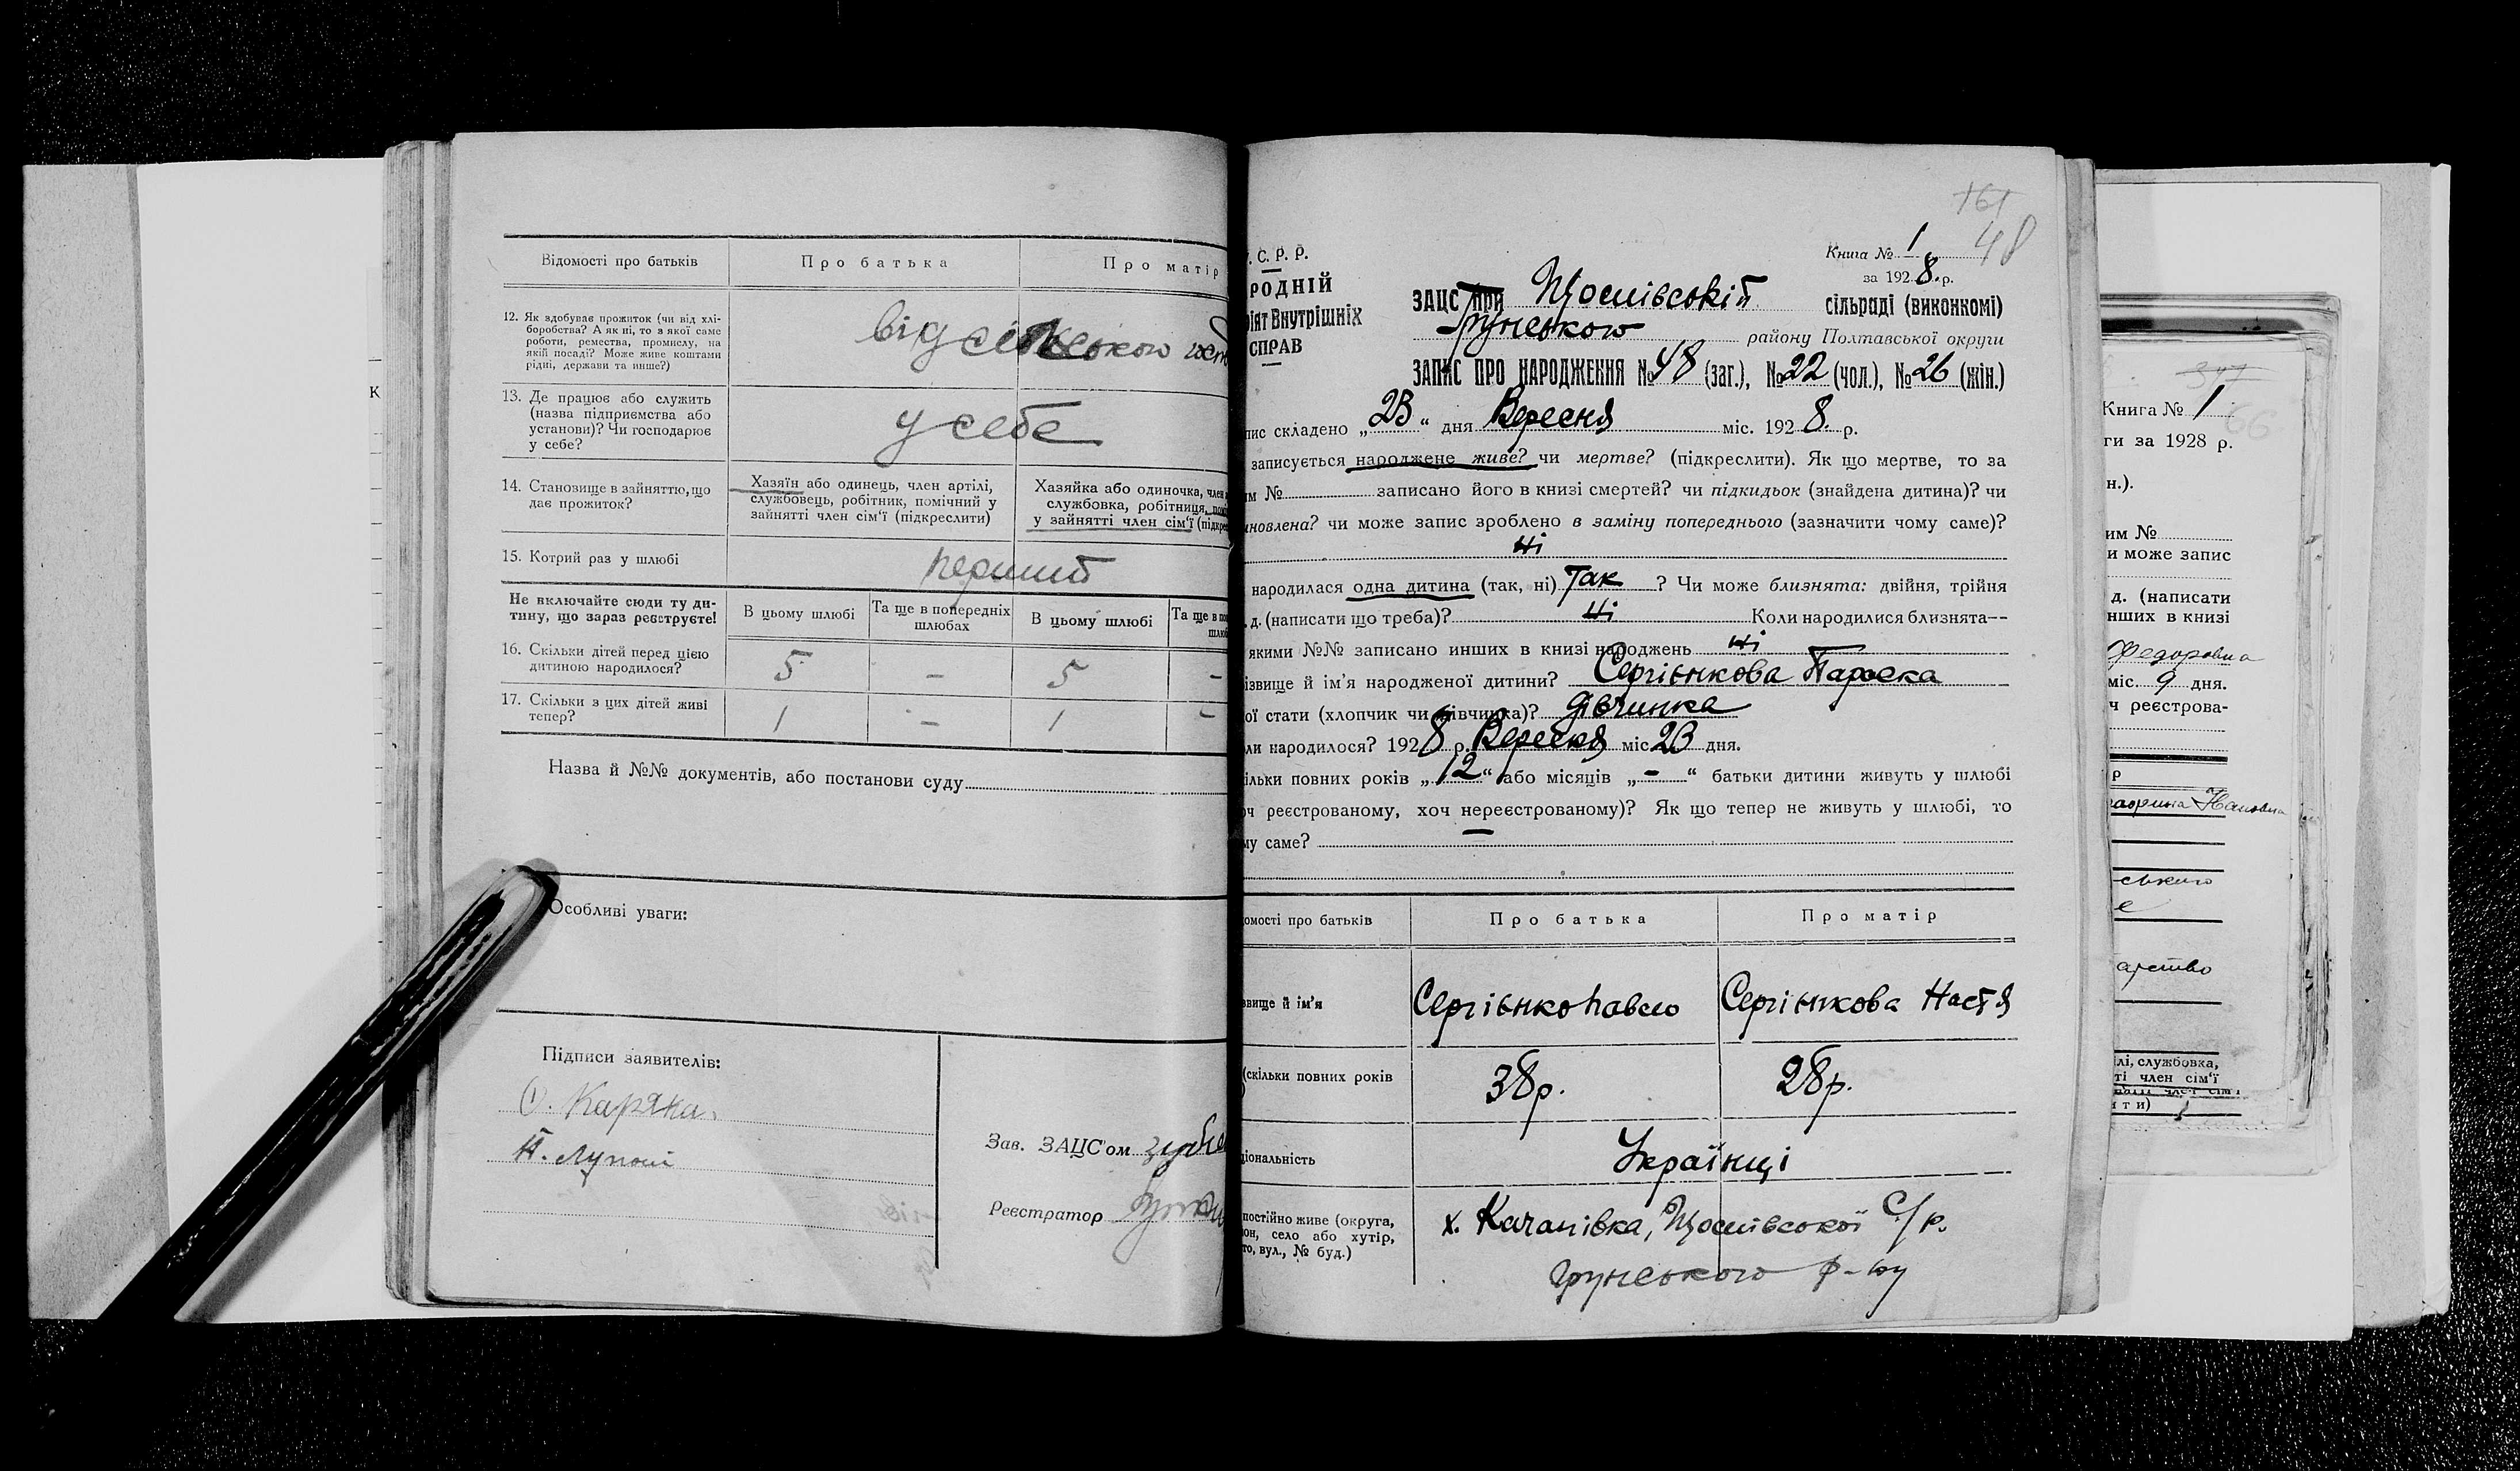 Відомості про батьків
Про батька
Про матір
12. Як здобуває прожиток (чи від хлі-
боробства? А як ні, то з якої саме
роботи, ремества, промислу, на
якій посаді? Може живе коштами
рідні, держави та инше?)
від сільського
13. Де працює або служить
(назва підприємства або
установи)? Чи господарює
у себе?
у себе
14. Становище в зайняттю, що
дає прожиток?
Хазяїн або одинець, член артілі,
службовець, робітник, помічний у
зайнятті член сім'ї (підкреслити)
Хазяйка або одиночка, член
службовка, робітниця,
у зайнятті член сім'ї (підкре
15. Котрий раз у шлюбі
перший
Не включайте сюди ту ди-
тину, що зараз реєструєте!
В цьому шлюбі
Та ще в попередніх
шлюбах
В цьому шлюбі
Та ще в по
шлюб
16. Скільки дітей перед цією
дитиною народилося?
5 - 5 -
17. Скільки з цих дітей живі
тепер?
1 - 1 -
Назва й №№ документів, або постанови суду
Особливі уваги:
Підписи заявителів:
О. Каряка.
Зав. ЗАЦС'ом
Реєстратор
161
48
. С. Р. Р.
РОДНІЙ
ріят Внутрішніх
СПРАВ
Книга № 1
за 1928 р.
ЗАЦС при сільраді (виконкомі)
Грунського району Полтавської округи
ЗАПИС ПРО НАРОДЖЕННЯ № 48 (заг.), № 22 (чол.), № 26 (жін.)
пис складено „23“ дня Вересня міс. 1928. р.
записується народжене живе? чи мертве? (підкреслити). Як що мертве, то за
им № записано його в книзі смертей? чи підкидьок (знайдена дитина)? чи
новлена? чи може запис зроблено в заміну попереднього (зазначити чому саме)?
ні
народилася одна дитина (так, ні) Так ? Чи може близнята: двійня, трійня
. д. (написати що треба)? ні Коли народилися близнята—
якими №№ записано инших в книзі народжень ні
ізвище й ім'я народженої дитини? Сергієнкова Параска
ої стати (хлопчик чи дівчинка)? дівчинка
ли народилося? 1928 р. Вересня міс 23 дня.
ільки повних років „12“ або місяців „-“ батьки дитини живуть у шлюбі
оч реєстрованому, хоч нереєстрованому)? Як що тепер не живуть у шлюбі, то
му саме? —
омості про батьків
Про батька
Про матір
звище й ім'я
Сергієнко Павло
Сергієнкова Настя
(скільки повних років
)
38р.
28р.
ціональність
Українці
постійно живе (округа,
он, село або хутір,
то, вул., № буд.)
х. Качанівка, С/р.
Грунського р-ну
К
347
66
Книга № 1
ги за 1928 р.
н.).
им №
и може запис
д. (написати
нших в книзі
Федоровна
міс. 9 дня.
ч реєстрова-
р
ського
е
арство
ілі, службовка,
ті член сім'ї
ити)